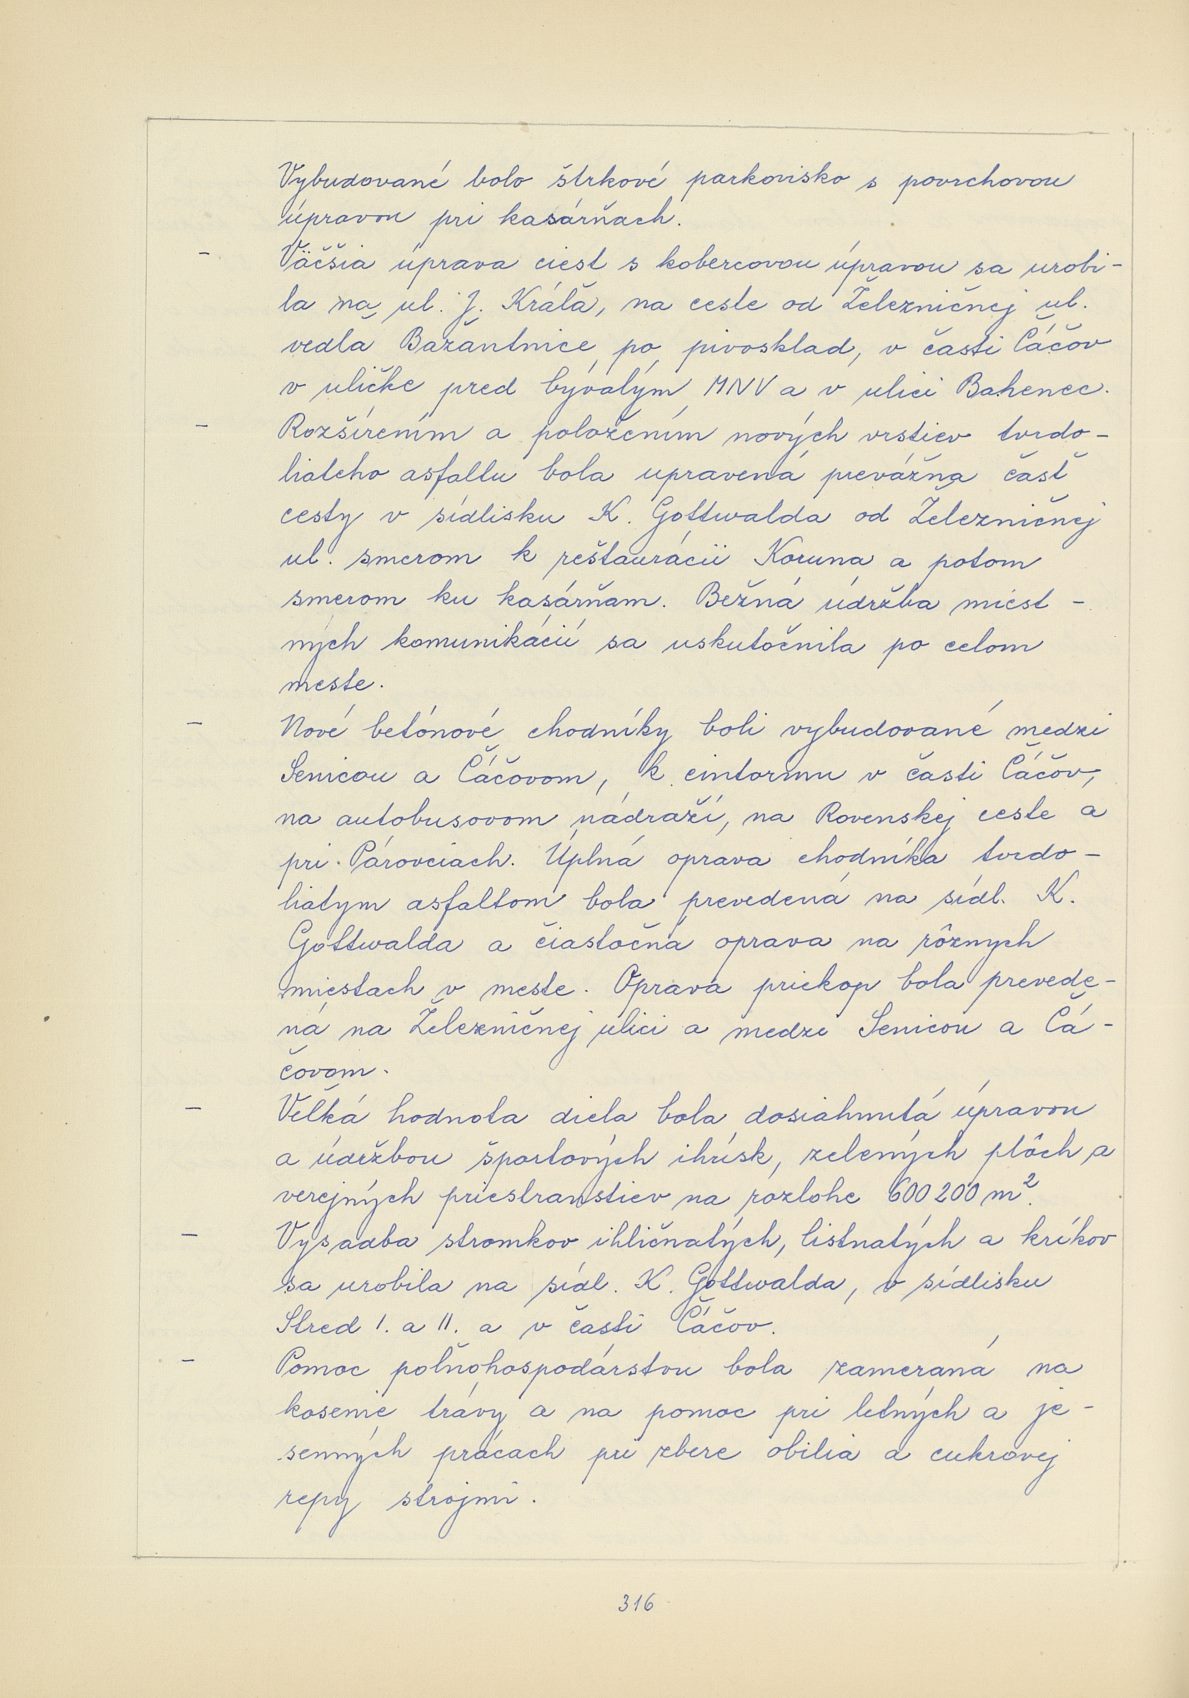 Vybudované bolo štrkové parkovisko s povrchovou
úpravou pri kasárňach.
- Väčšia úprava ciest s kobercovou úpravou sa urobi-
la na ul. J. Kráľa, na ceste od Železničnej ul.
vedľa Bažantnice po pivosklad, v časti Čáčov
v uličke pred bývalým MNV a v ulici Bahenec.
- Rozšírením a položením nových vrstiev tvrdo-
liateho asfaltu bola upravená prevážna časť
cesty v sídlisku K. Gottwalda od Železničnej
ul. smerom k reštaurácii Koruna a potom
smerom ku kasárňam. Bežná údržba miest-
nych komunikácií sa uskutočnila po celom
meste.
- Nové betónové chodníky boli vybudované medzi
Senicou a Čáčovom, k cintorinu v časti Čáčov,
na autobusovom nádraží, na Rovenskej ceste a
pri Párovciach. Úplná oprava chodníka tvrdo-
liatym asfaltom bola prevedená na sídl. K.
Gottwalda a čiastočná oprava na rôznych
miestach v meste. Oprava priekop bola prevede-
ná na Železničnej ulici a medzi Senicou a Čá-
čovom.
- Veľká hodnota diela bola dosiahnutá úpravou
a údržbou športových ihrísk, zelených plôch a
verejných priestranstiev na rozlohe 600 200 m².
- Vysadba stromkov ihličnatých, listnatých a kríkov
sa urobila na sídl. K. Gottwalda, v sídlisku
Stred I. a II. a v časti Čáčov.
- Pomoc poľnohospodárstvu bola zameraná na
kosenie trávy a na pomoc pri letných a je-
senných prácach pri zbere obilia a cukrovej
repy strojmi.
316